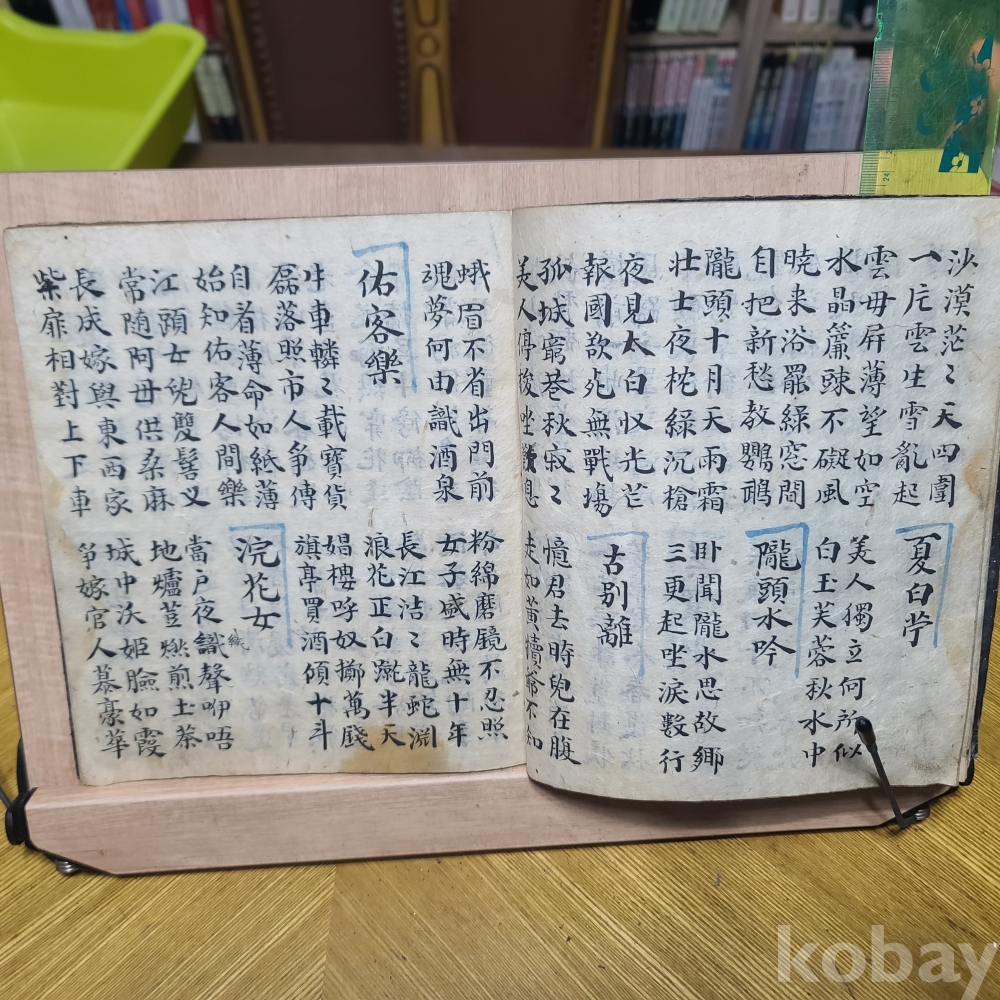 沙漠茫〻天四圍
一片雲生雪亂起
夏白苧
雲母屏薄望如空
水晶簾踈不礙風
美人獨立何所似
白玉芙蓉秋水中
曉来浴罷綠窓間
自把新愁教鸚鵡
隴頭水吟
隴頭十月天雨霜
壯士夜枕綠沉槍
卧聞隴水思故鄉
三更起坐淚數行
夜見太白収光芒
報國欲死無戰塲
古别離
孤城窮巷秋寂〻
美人停梭坐歎息
憶君去時兒在腹
走如黃犢爺不知
蛾眉不省出門前
魂夢何由識酒泉
粉綿磨鏡不忍照
女子盛時無十年
佑客樂
長江浩〻龍蛇淵
浪花正白蹴半天
牛車轔〻載寶貨
磊落照市人爭傳
娼樓呼奴擲萬錢
旗亭買酒傾十斗
自看薄命如紙薄
始知佑客人間樂
浣花女
江頭女兒雙髻丫
常随阿母供桑麻
當户夜識聲咿唔
織
地爐荳煎土茶
長成嫁與東西家
柴扉相對上下車
城中沃姬臉如霞
爭嫁官人慕豪華
kobay